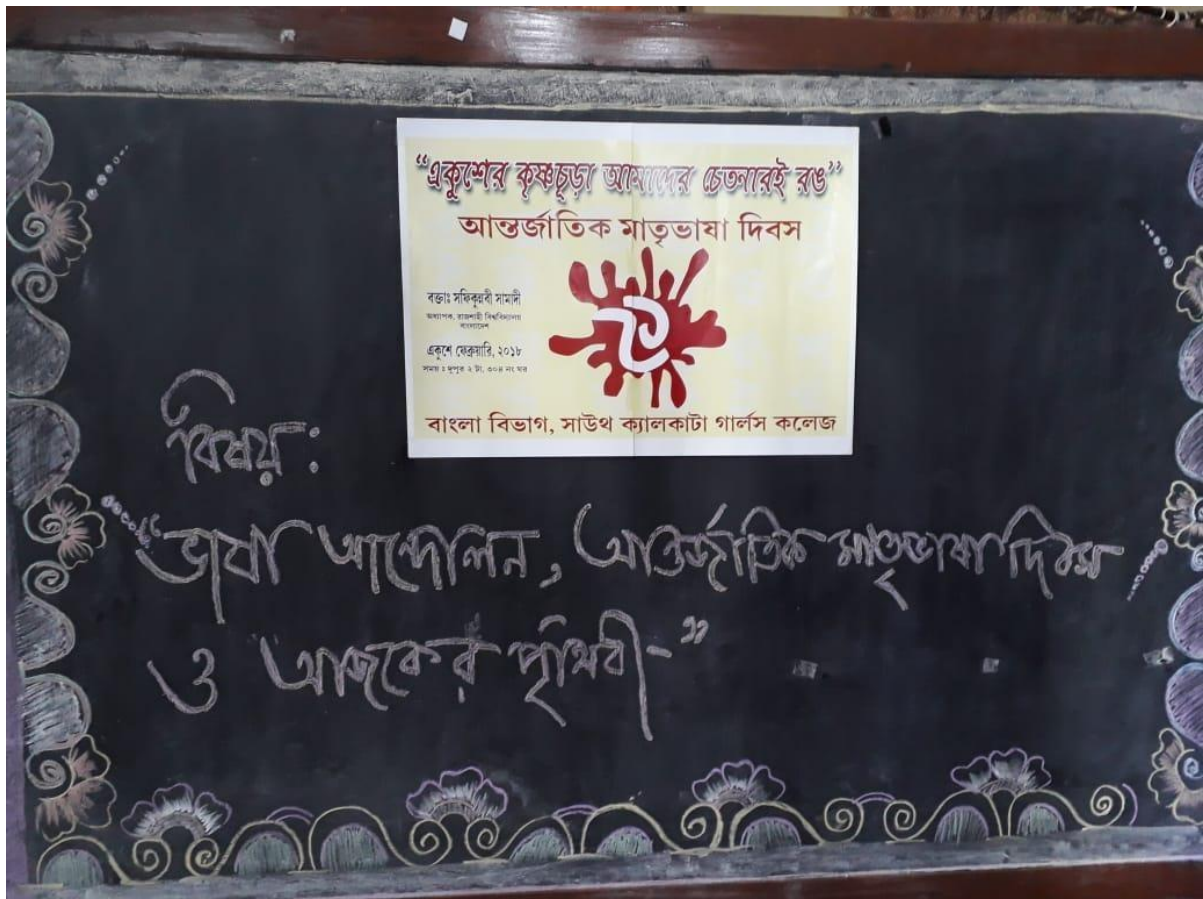 “একুশের কৃষ্ণচূড়া আমাদের চেতনারই রঙ”
আন্তর্জাতিক মাতৃভাষা দিবস
বক্তাঃ সফিকুন্নবী সামাদী
অধ্যাপক, রাজশাহী বিশ্ববিদ্যালয়
বাংলাদেশ
একুশে ফেব্রুয়ারি, ২০১৮
সময় : দুপুর ২ টা, ৩০৪ নং ঘর
বাংলা বিভাগ, সাউথ ক্যালকাটা গার্লস কলেজ
বিষয় :
“ভাষা আন্দোলন, আন্তর্জাতিক মাতৃভাষা দিবস
ও আজকের পৃথিবী”